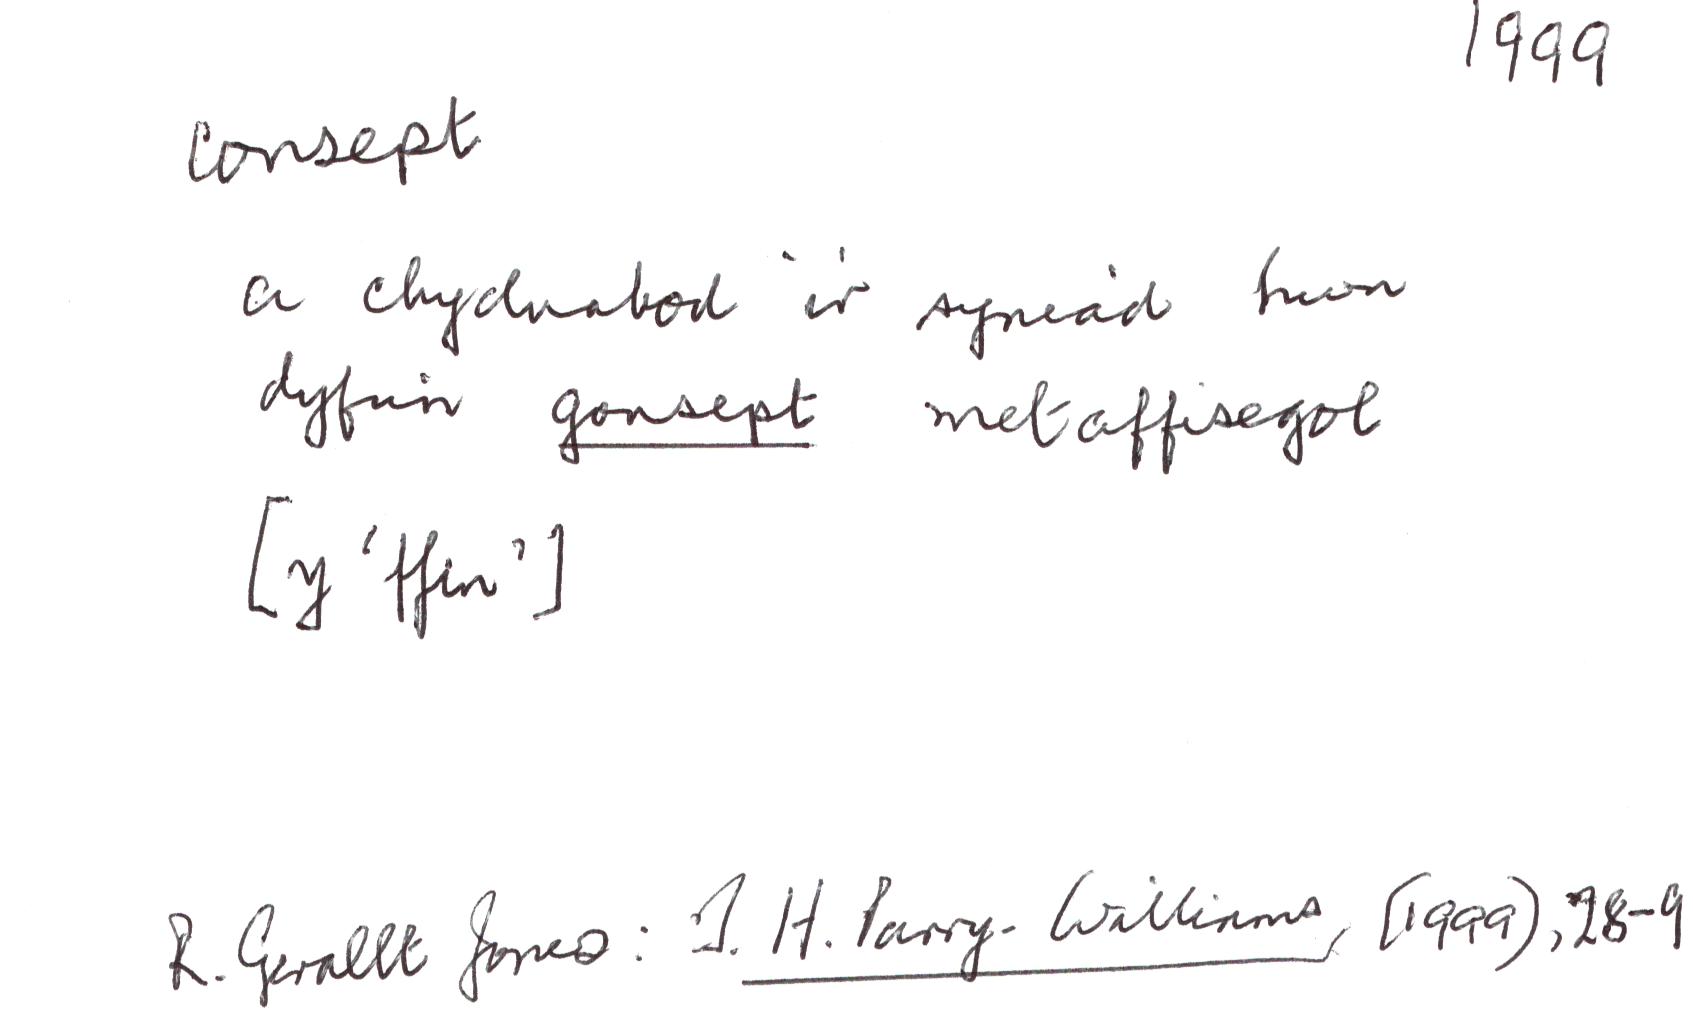 1999
consept
a chydnabod i'r syniad hwn
dyfu'n gonsept metaffisegol
[y 'ffin']
R. Gerallt Jones: T. H. Parry-Williams, (1999), 28-9